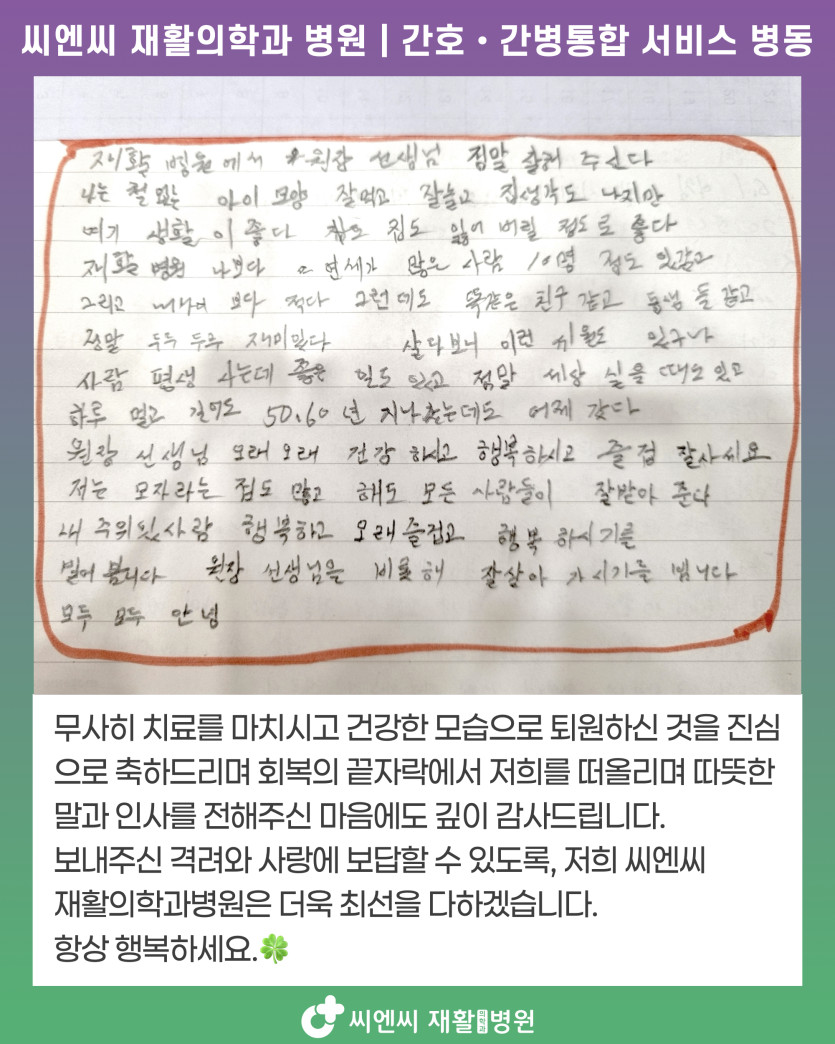 씨엔씨 재활의학과 병원 | 간호・간병통합 서비스 병동
재활 병원에서 원장 선생님 정말 잘해 주신다
나는 철 없는 아이 모양 잘먹고 잘놀고 집생각도 나지만
여기 생활이 좋다 집도 잃어 버릴 정도로 좋다
재활 병원 나보다 연세가 많은 사람 10명 정도 있갔고
그리고 보다 적다 그런데도 똑같은 친구 같고 동생 들 같고
정말 두루 두루 재미있다 살다보니 이런 일도 있구나
사람 평생 사는데 좋은 일도 있고 정말 세상 싫을 때도 있고
하루 멀고 길어도 50.60년 지나 갔는데도 어제 같다
원장 선생님 오래오래 건강하시고 행복하시고 즐겁 잘사세요
저는 모자라는 점도 많고 해도 모든 사람들이 잘받아 준다
내 주위 사람 행복하고 오래즐겁고 행복 하시기를
빌어 봅니다 원장 선생님을 비롯해 잘살아 가시기를 빕니다
모두 모두 안녕
무사히 치료를 마치시고 건강한 모습으로 퇴원하신 것을 진심
으로 축하드리며 회복의 끝자락에서 저희를 떠올리며 따뜻한
말과 인사를 전해주신 마음에도 깊이 감사드립니다.
보내주신 격려와 사랑에 보답할 수 있도록, 저희 씨엔씨
재활의학과병원은 더욱 최선을 다하겠습니다.
항상 행복하세요.🍀
씨엔씨 재활의학과병원